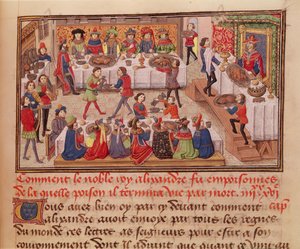 Comment le noble roy alixandre fu empoisonnes
de la quelle poison il termina vie par mort. iiiixxxvj
Vous avez bien oy par cy devant comment cap
alixandre avoit envoye par tous les regnes
du monde ses lettres as seigneurs pour estre a son
couronnement dont il advint que quant ce vint au